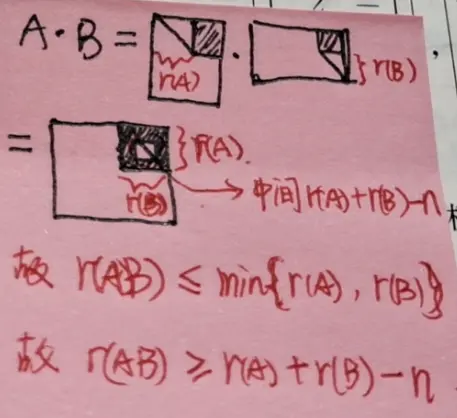 A·B = r(A) · } r(B) ,
= } r(A).
r(B) → 中间 r(A)+r(B)-n
故 r(AB) ≤ min{r(A), r(B)}
故 r(AB) ≥ r(A)+r(B)-n